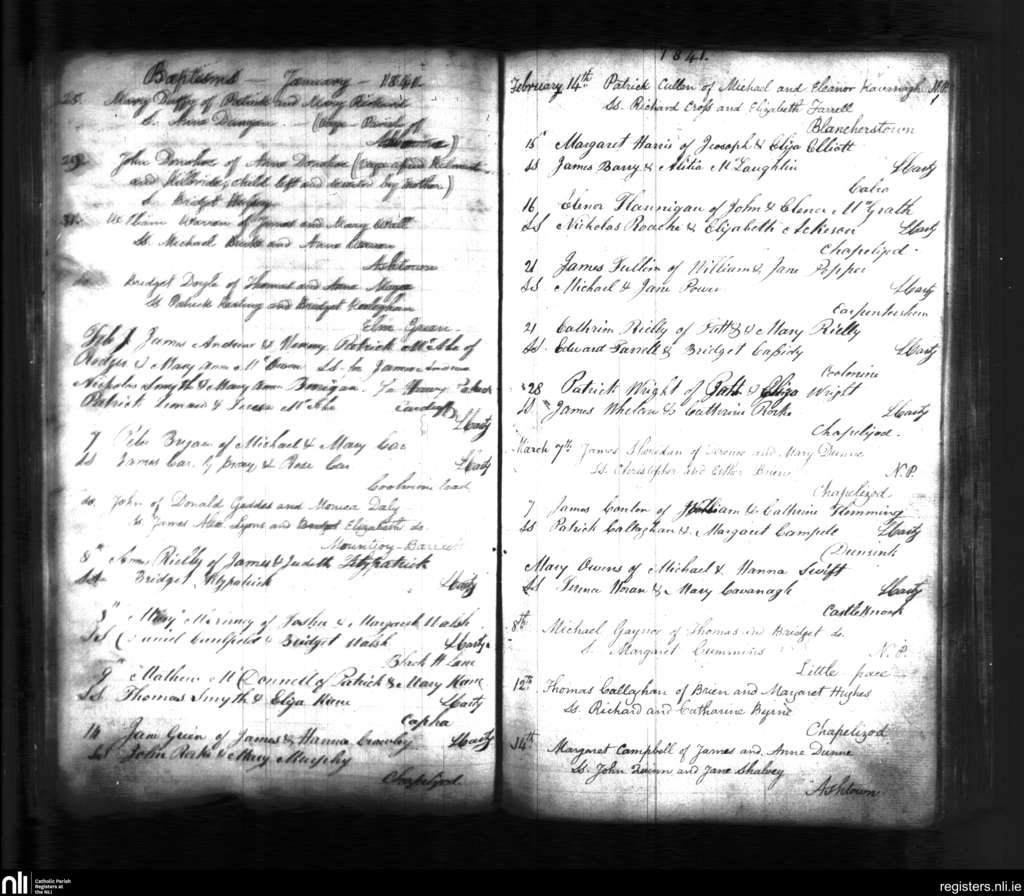 Baptisms — January — 1841.
25. Mary Duffy of Patrick and Mary
S. Anne Dungan — ( Parish of
)
John Donohoe of Anne Donohoe (
and Kilbride, child left and deserted by mother)
S. Bridget
31. William Warren of James and Mary
Ss. Michael and Anne
Ashtown
do. Bridget Doyle of Thomas and Anne
Ss Patrick Keating and Bridget Geoheghan
Elm Green.
James Andrew & Patrick McCabe of
Rodger & Mary Ann McOwen Ss. for James Andrew
Nicholas Smyth & Mary Ann Bonigan. For
Patrick & Teresa McCabe
SCarty
7 Peter Bryan of Michael & Mary Car
SS James Car & Rose Car SCarty
Coolmine road
do. John of Donald Geddes and Monica Daly
Ss. James Alex. Lyons and Elizabeth do.
Mountjoy-Barrack
8" Anne Rielly of James & Judith Fitzpatrick
Bridget Fitzpatrick SCarty
8" Mary of & Margaret Walsh
SS David Caulfield & Bridget Walsh SCarty
Black H Lane
9" Mathew McDonnell of Patrick & Mary Kane
SS Thomas Smyth & Eliza Kane SCarty
Capha
14 Jane Green of James & Hanna Crowley SCarty
SS John Rorke & Mary Murphy
Chapelizod
1841.
February 14th Patrick Cullen of Michael and Eleanor Kavanagh N.P.
Ss. Richard Cross and Elizabeth Farrell
Blancherstown
15" Margaret Harris of Jeosoph & Eliza Elliott
SS James Barry & Alitia McLaughlin SCarty
Cabra
16 Elenor Flannigan of John & Elenor McGrath
SS Nicholas Roache & Elizabeth Acheson SCarty
Chapelizod.
21 James Fullim of William & Jane Pepper
SS Michael & Jane Power SCarty
Carpenterstown
21 Cathrin Rielly of Patt & Mary Rielly
SS. Edward Farrell & Bridget Cassidy SCarty
Coolmine
28 Patrick Wright of Patt & Eliza Wright
SS. James Whelan & Catherine Rorke SCarty
Chapelizod.
March 7th James Sheridan of Terence and Mary Dunne
Ss. Christopher and Esther Brien N.P.
Chapelizod
7 James Conlon of William & Cathrine Flemming
SS Patrick Callaghan & Margaret Campele SCarty
Dunsink
Mary Owens of Michael & Hanna Swift
SS Teresa Horan & Mary Cavanagh SCarty
Castleknock
8th Michael Gaynor of Thomas and Bridget do.
S. Margaret Cummins N.P.
Little pace
12th Thomas Callaghan of Brien and Margaret Hughes
Ss. Richard and Catharine Byrne
Chapelizod
14th Margaret Campbell of James and Anne Dunne
Ss. John Quinn and Jane Shalvey
Ashtown
nli
Catholic Parish
Registers at
the NLI
registers.nli.ie